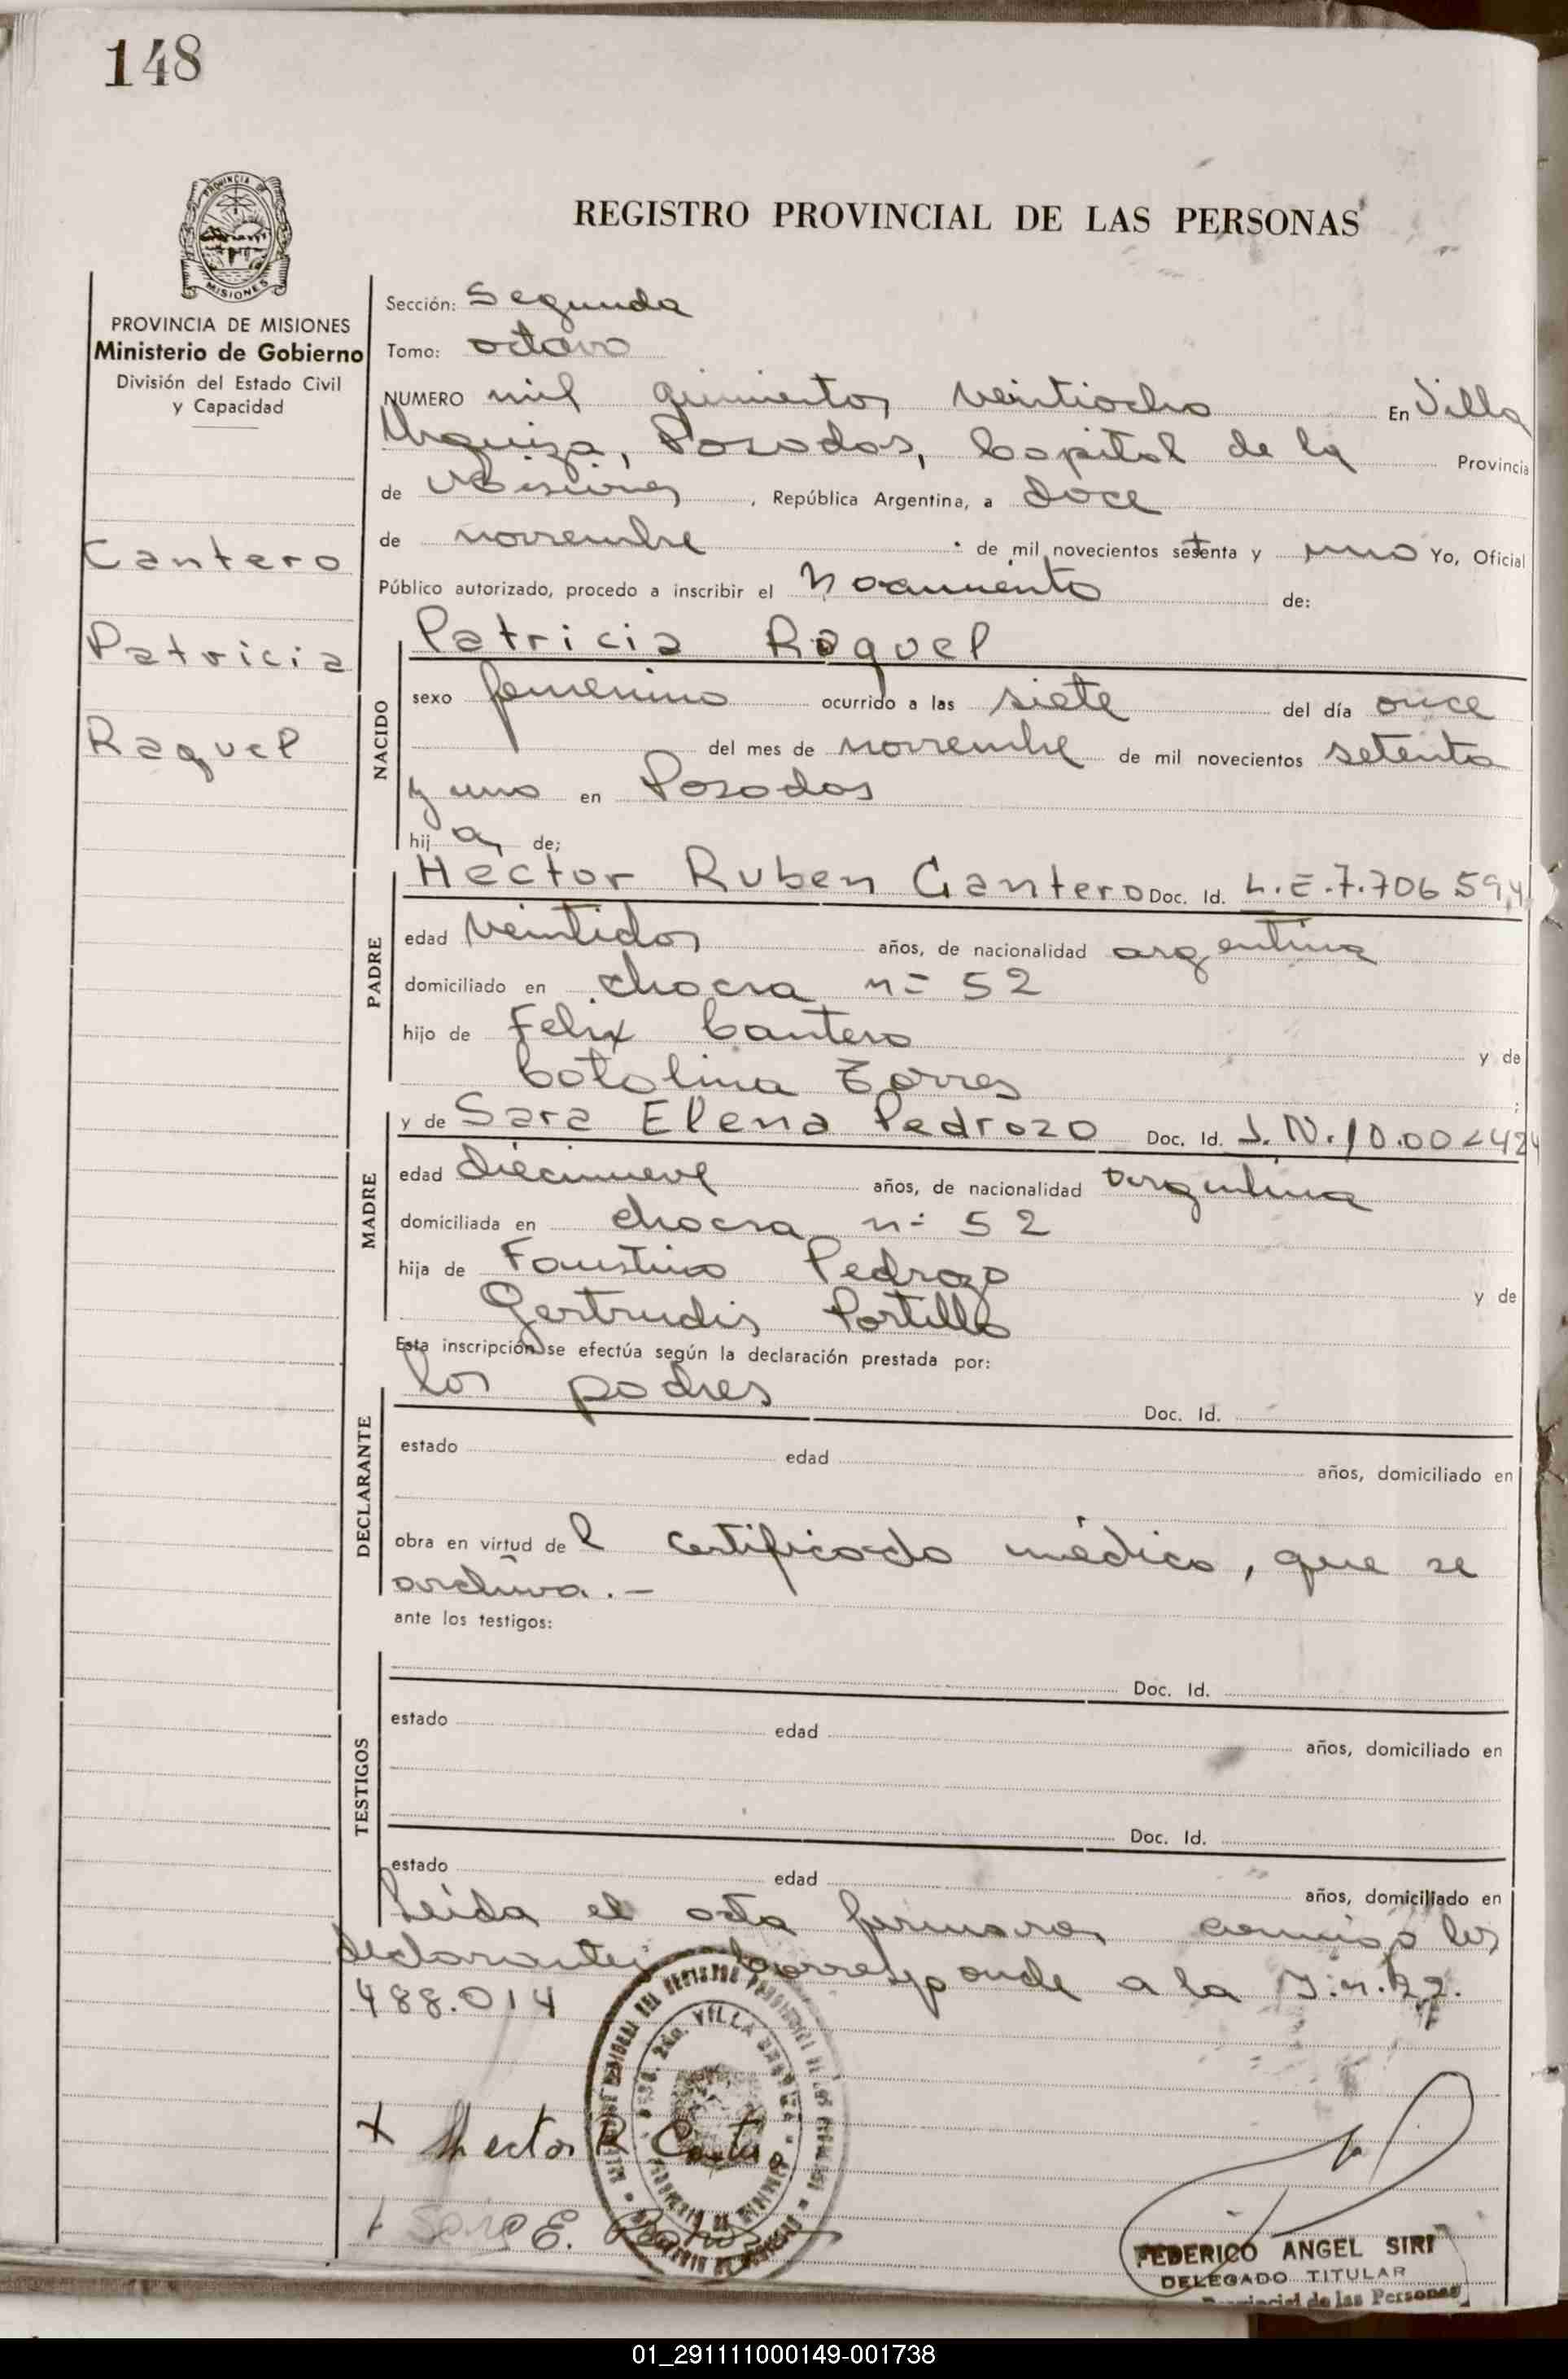 148
PROVINCIA DE
MISIONES
REGISTRO PROVINCIAL DE LAS PERSONAS
PROVINCIA DE MISIONES
Ministerio de Gobierno
División del Estado Civil
y Capacidad
Cantero
Patricia
Raquel
Sección: Segunda
Tomo: octavo
NUMERO mil quinientos veintiocho En Villa
Urquiza, Posadas, Capital de la Provincia
de Misiones, República Argentina, a doce
de noviembre de mil novecientos setenta y uno Yo, Oficial
Público autorizado, procedo a inscribir el Nacimiento de:
NACIDO
Patricia Raquel
sexo femenino ocurrido a las siete del día once
del mes de noviembre de mil novecientos setenta
y uno en Posadas
hija de;
PADRE
Hector Ruben Cantero Doc. Id. L.E.7.706.594
edad veintidos años, de nacionalidad argentina
domiciliado en chacra n= 52
hijo de Felix Cantero y de
Catalina Torres ;
MADRE
y de Sara Elena Pedrozo Doc. Id.
edad diecinueve años, de nacionalidad argentina
domiciliada en chacra n= 52
hija de Faustino Pedrozo y de
Gertrudis Portillo
Esta inscripción se efectúa según la declaración prestada por:
DECLARANTE
los padres Doc. Id.
estado edad años, domiciliado en
obra en virtud del certificado médico, que se
archiva.-
ante los testigos:
TESTIGOS
Doc. Id.
estado edad años, domiciliado en
Doc. Id.
estado edad años, domiciliado en
Leida el acta firmaron conmigo los
declarantes corresponde a la
488.014
Hector R Cantero
Sara E. Pedrozo
FEDERICO ANGEL SIRI
DELEGADO TITULAR
Provincial de las Personas
01_291111000149-001738